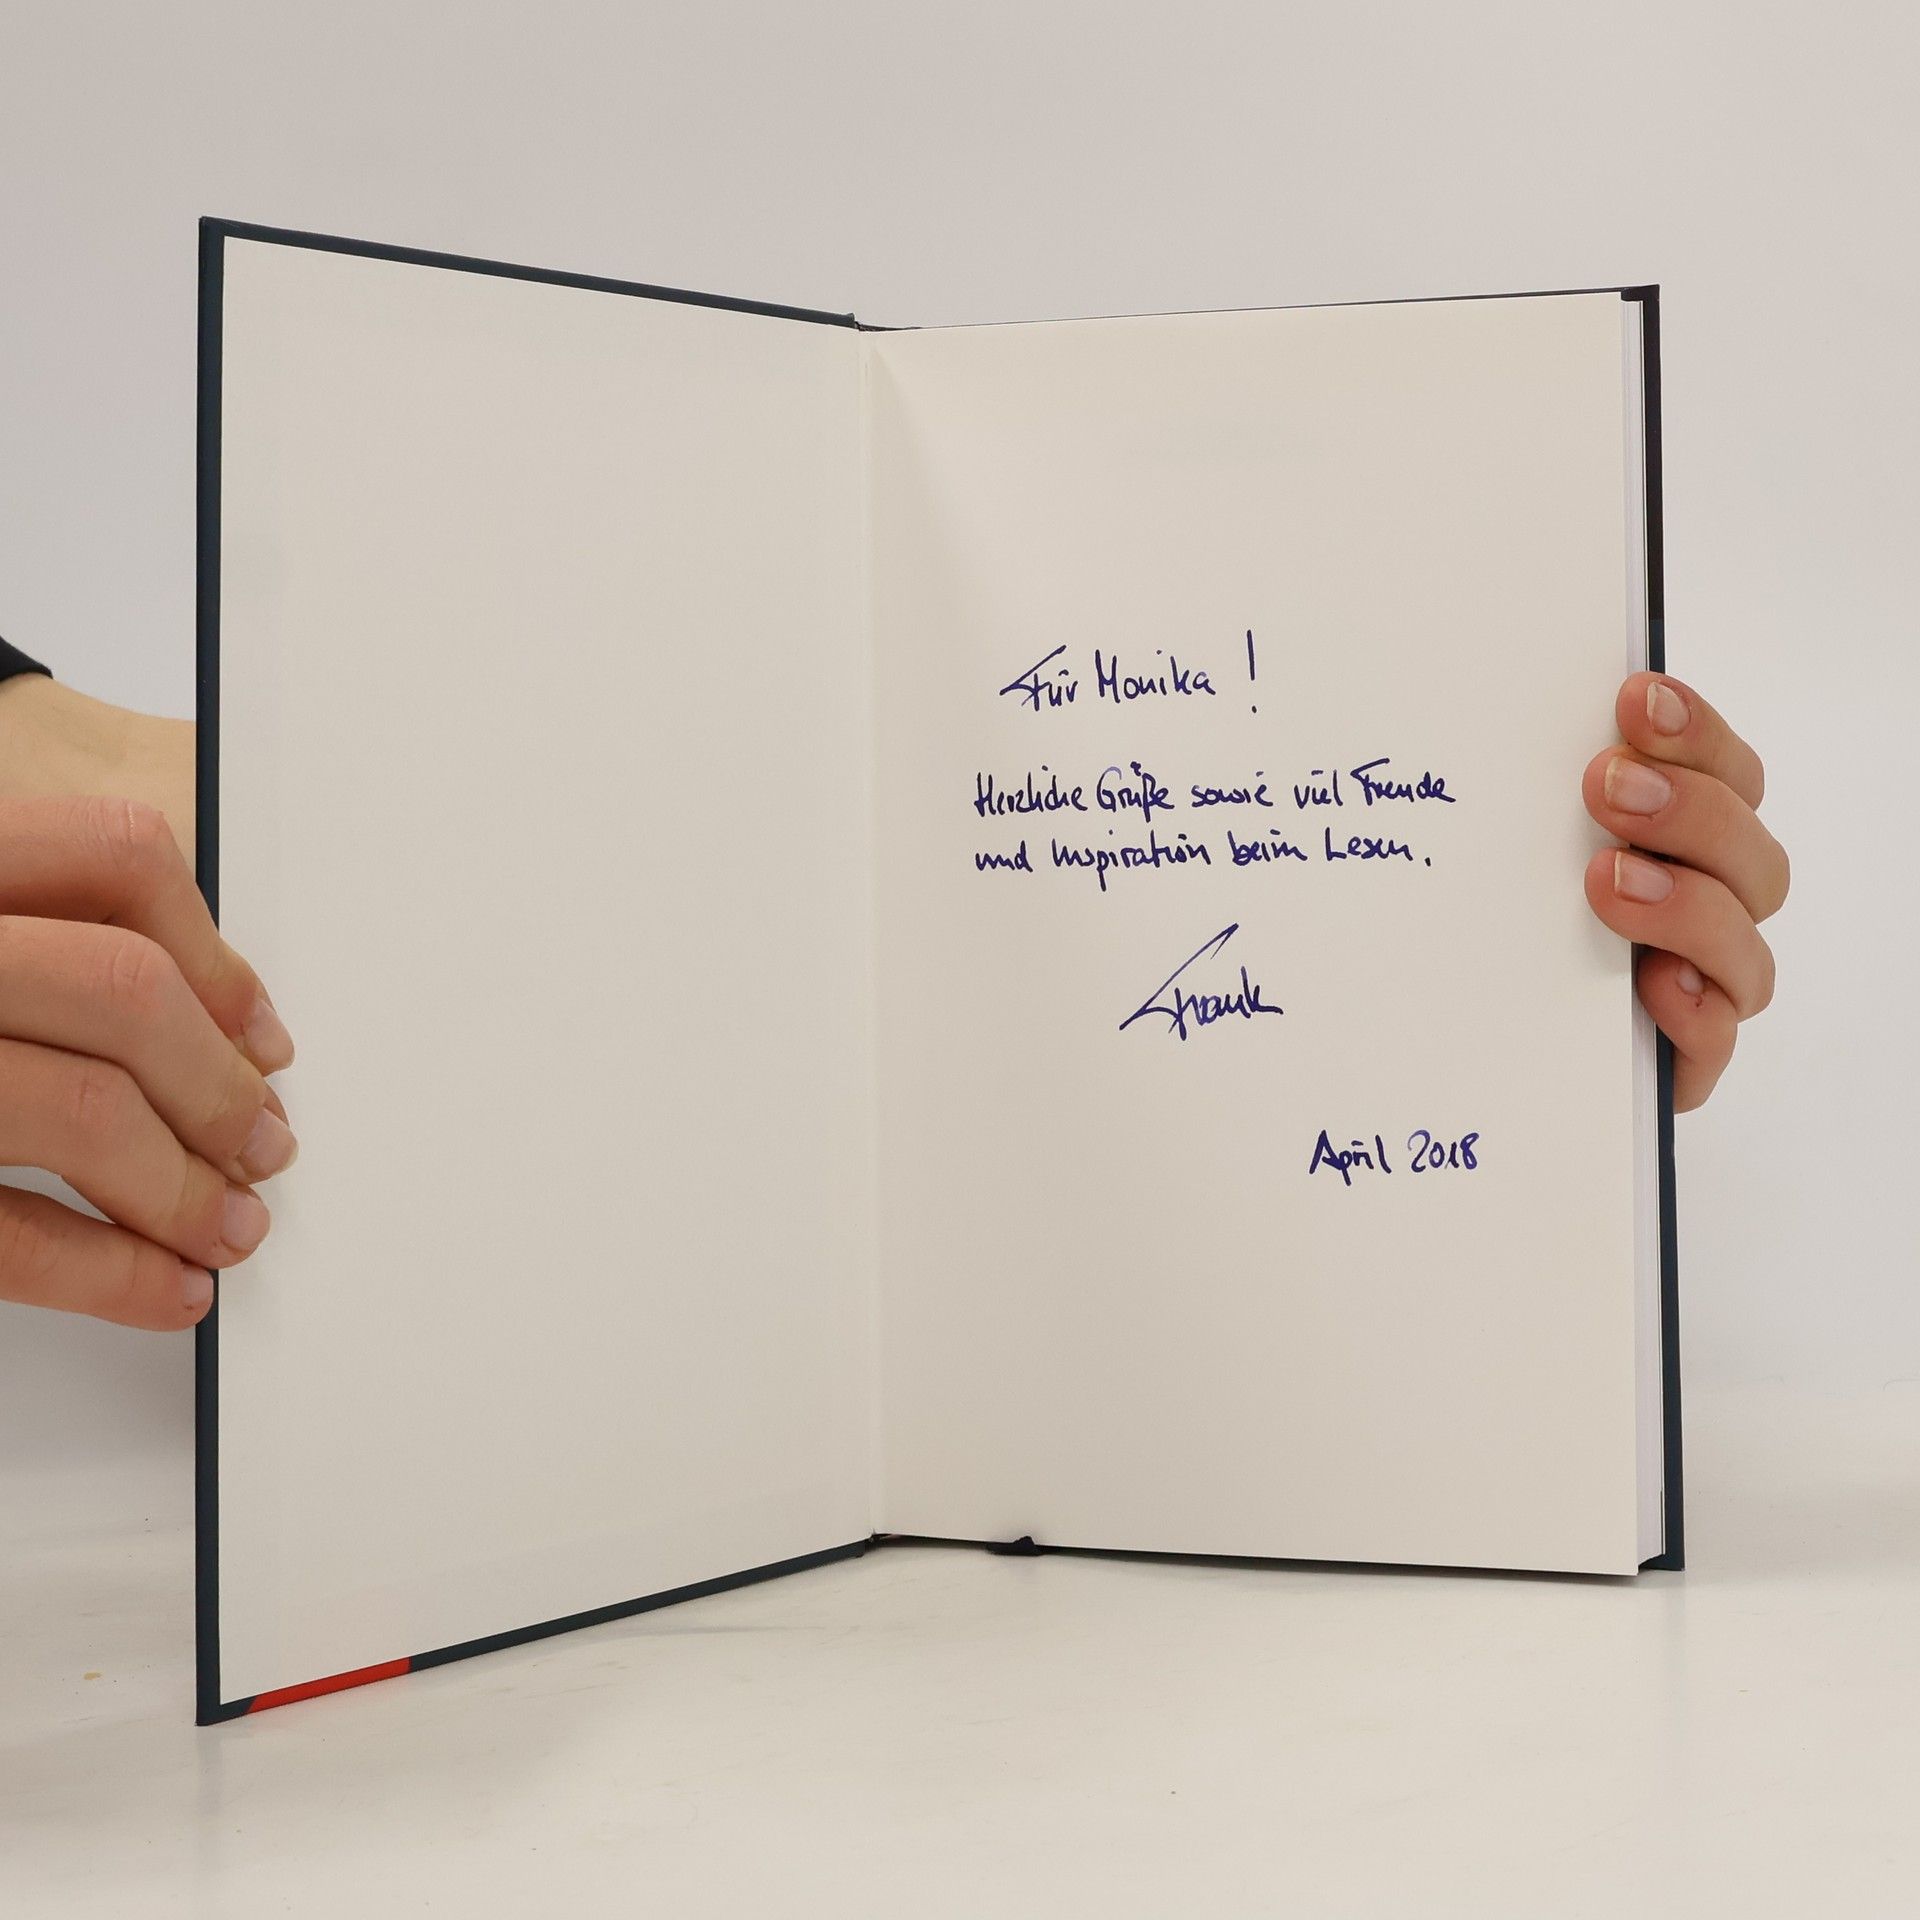 Für Monika !
Herzliche Grüße sowie viel Freude
und Inspiration beim Lesen.
Frank
April 2018